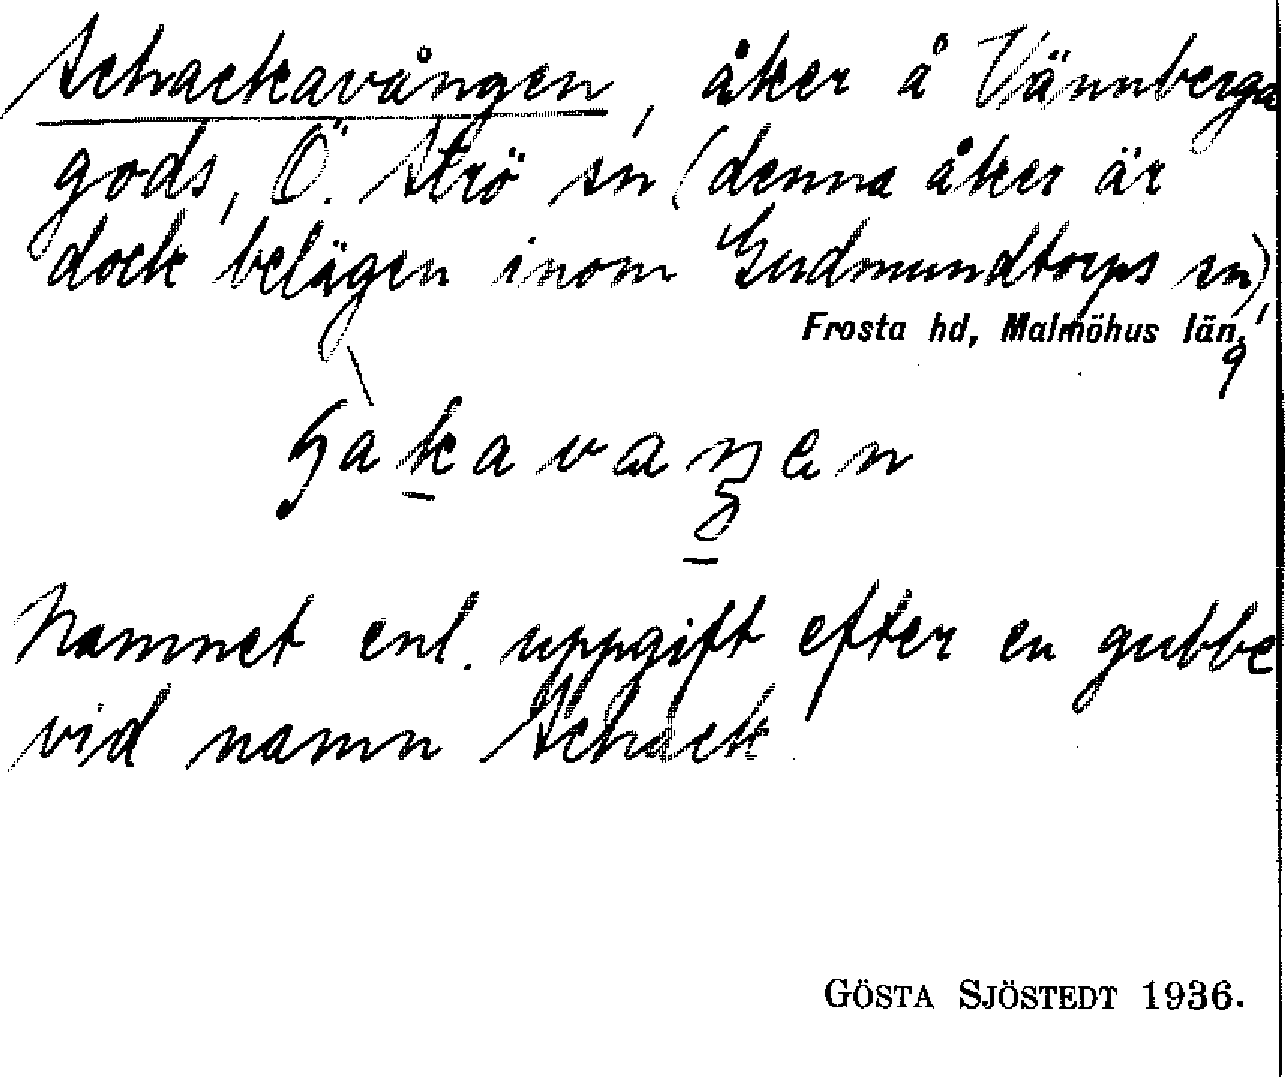 Schackavången, åker å Vännberga
gods, Ö. Strö sn (denna åker är
dock belägen inom Gudmundtorps sn),
Frosta hd, Malmöhus län.
Namnet enl. uppgift efter en gubbe
vid namn Schack.
GÖSTA SJÖSTEDT 1936.